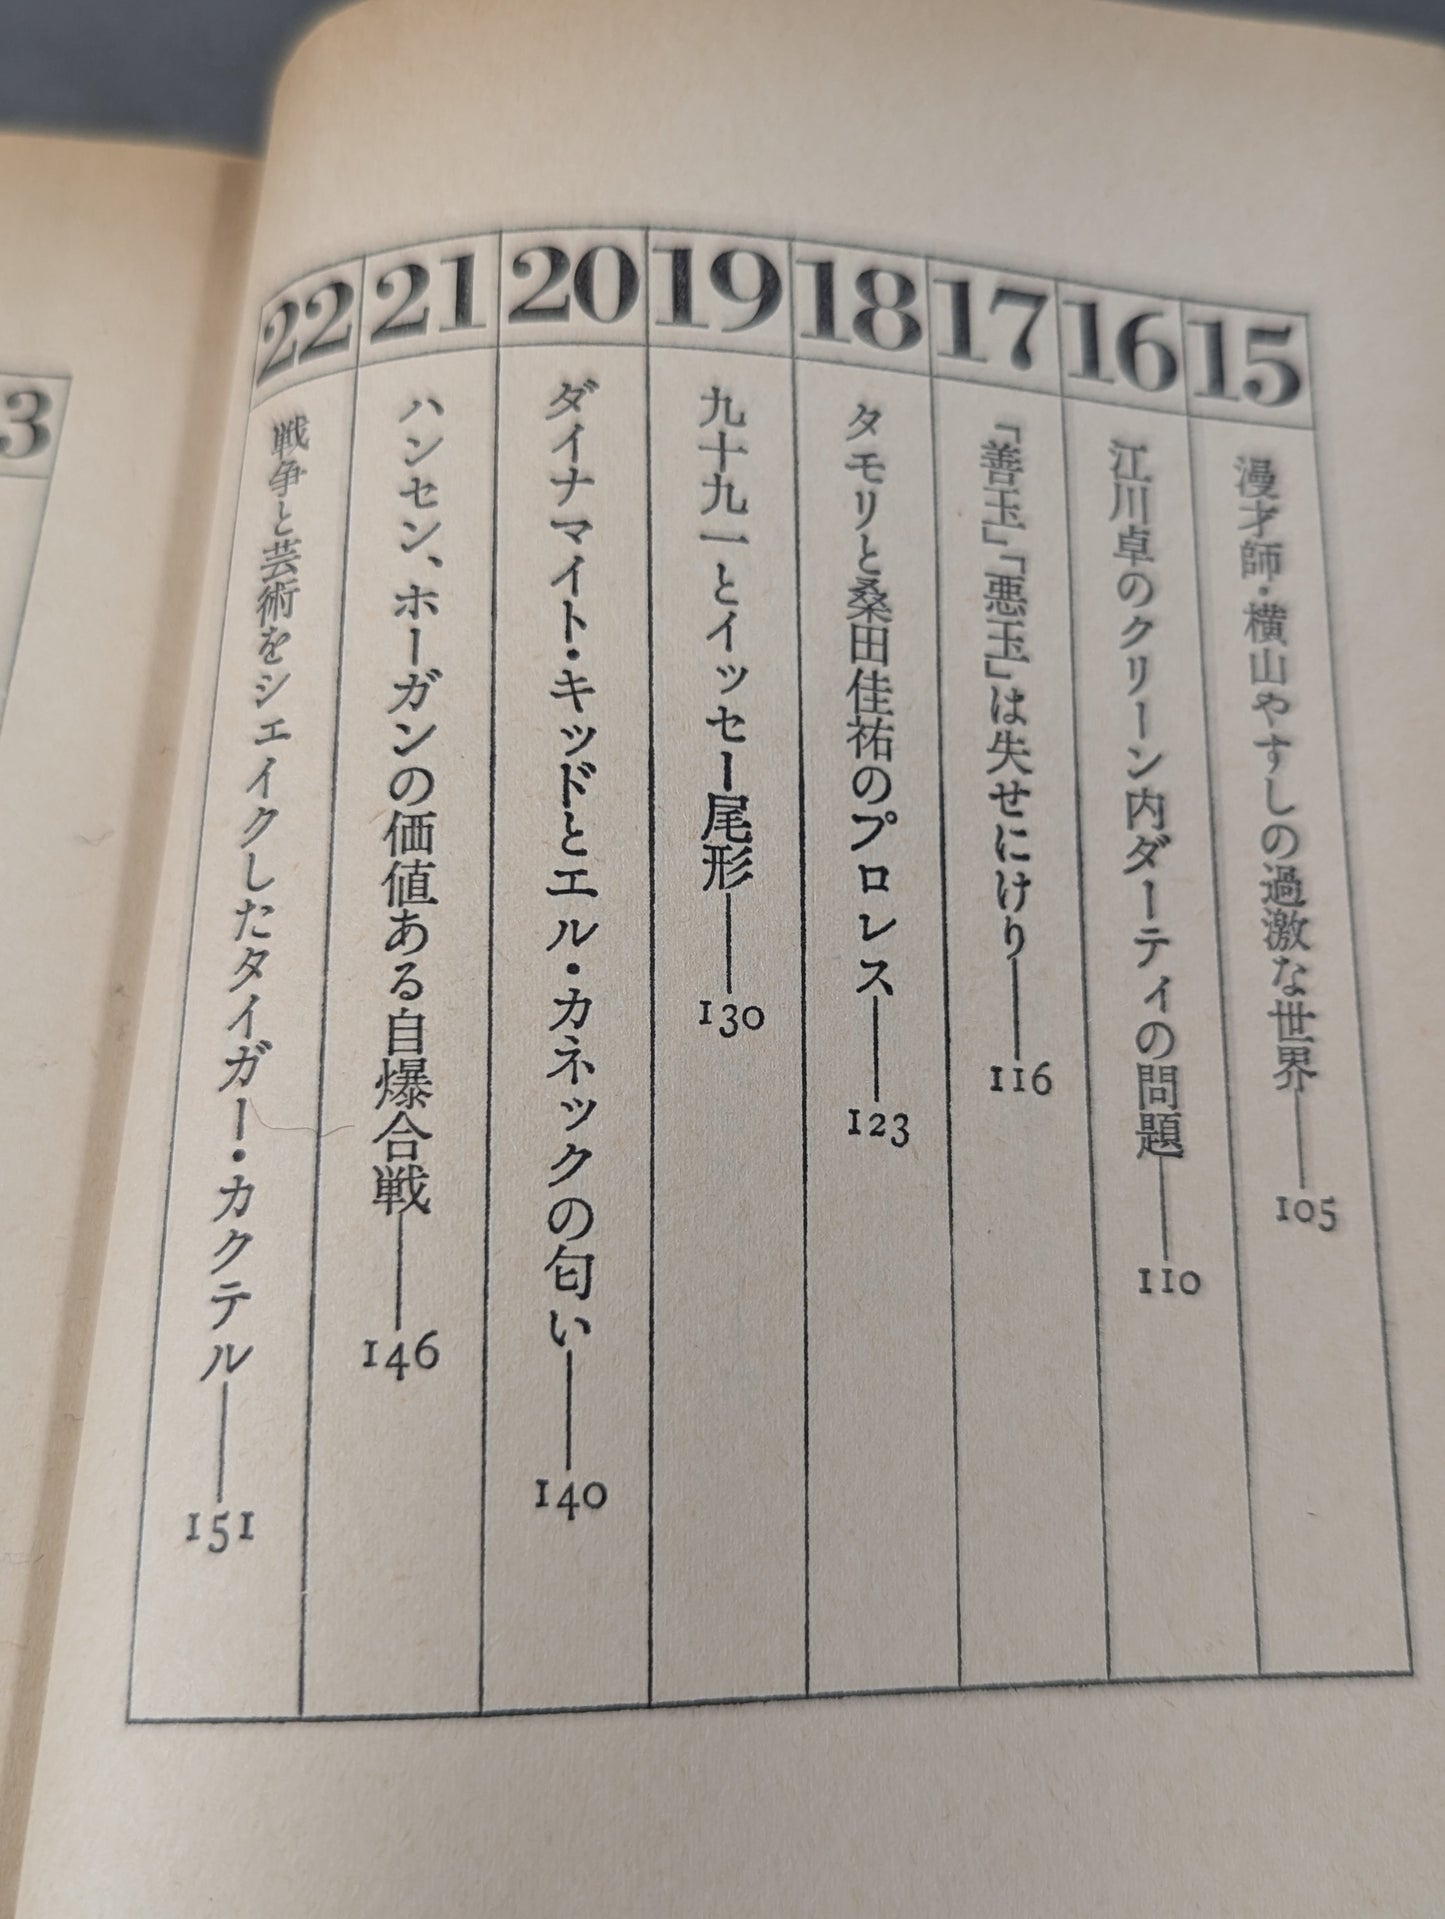 15
漫才師・横山やすしの過激な世界──105
16
江川卓のクリーン内ダーティの問題──110
17
「善玉」「悪玉」は失せにけり──116
18
タモリと桑田佳祐のプロレス──123
19
九十九一とイッセー尾形──130
20
ダイナマイト・キッドとエル・カネックの匂い──140
21
ハンセン、ホーガンの価値ある自爆合戦──146
22
戦争と芸術をシェイクしたタイガー・カクテル──151
3